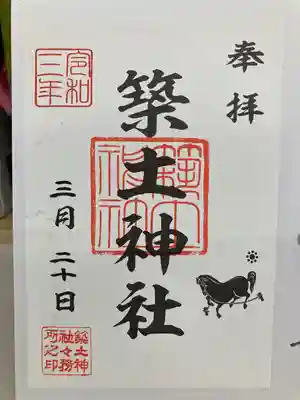 奉拝
築土神社
築土神社
令和
三年
三月二十日
築土神
社々務
所之印